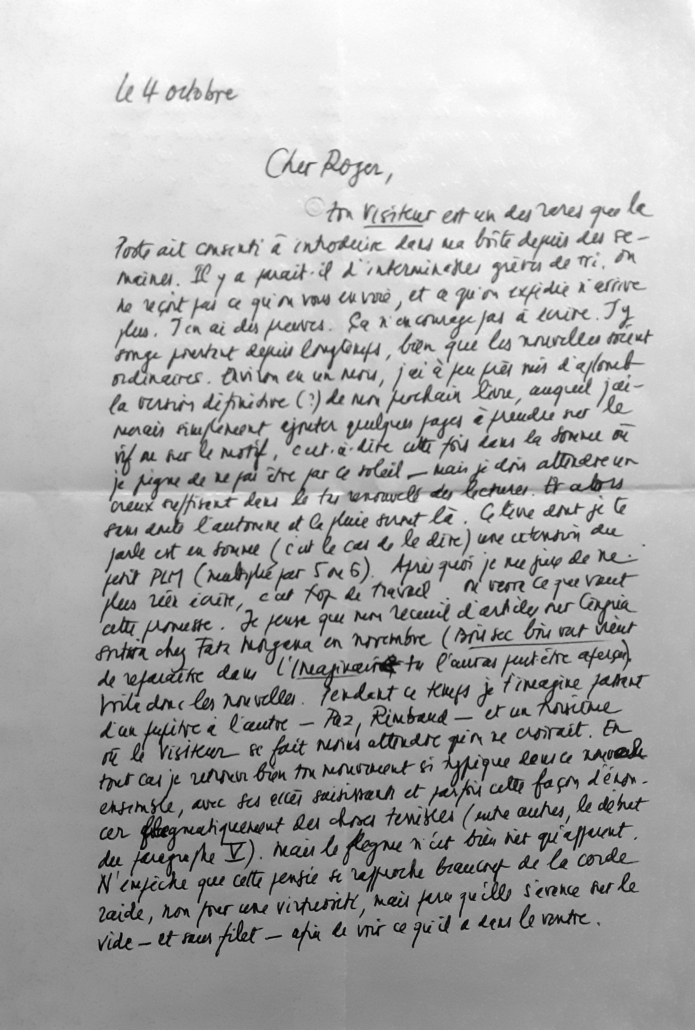 le 4 octobre
Cher Roger,
ton Visiteur est un des rares que la
Poste ait consenti à introduire dans ma boîte depuis des se-
maines. Il y a paraît-il d'interminables grèves de tri. On
ne reçoit pas ce qu'on vous envoie, et ce qu'on expédie n'arrive
plus. J'en ai des preuves. Ça n'encourage pas à écrire. J'y
songe pourtant depuis longtemps, bien que les nouvelles soient
ordinaires. Environ en un mois, j'ai à peu près mis d'aplomb
la version définitive (?) de mon prochain livre, auquel j'ai-
merais simplement ajouter quelques pages à prendre sur le
vif ou sur le motif, c'est-à-dire cette fois dans la Somme où
je de ne pas être par ce soleil — mais je dois attendre un
creux suffisant dans le renouvelé des lectures. Et alors
sans doute l'automne et la pluie seront là. Ce livre dont je te
parle est en somme (c'est le cas de le dire) une extension du
petit PLM (multiplié par 5 ou 6). Après quoi je me jure de ne
plus rien écrire, c'est trop de travail on verra ce que vaut
cette promesse. Je pense que mon recueil d'articles sur Cingria
sortira chez Fata Morgana en novembre (Bois sec bois vert vient
de reparaître dans l'Imaginaire tu l'auras peut-être aperçu).
Voilà donc les nouvelles. Pendant ce temps je t'imagine passant
d'un pupitre à l'autre — Paz, Rimbaud — et un troisième
où le visiteur se fait moins attendre qu'on ne croirait. En
tout cas je retrouve bien ton mouvement si typique dans ce nouvel
ensemble, avec ses saisissants et parfois cette façon d'énon-
cer flegmatiquement des choses terribles (entre autres, le début
du paragraphe V). Mais le flegme n'est bien sûr qu'apparent.
N'empêche que cette pensée se rapproche beaucoup de la corde
raide, non pour une virtuosité, mais parce qu'elle s'avance sur le
vide — et sans filet — afin de voir ce qu'il a dans le ventre.